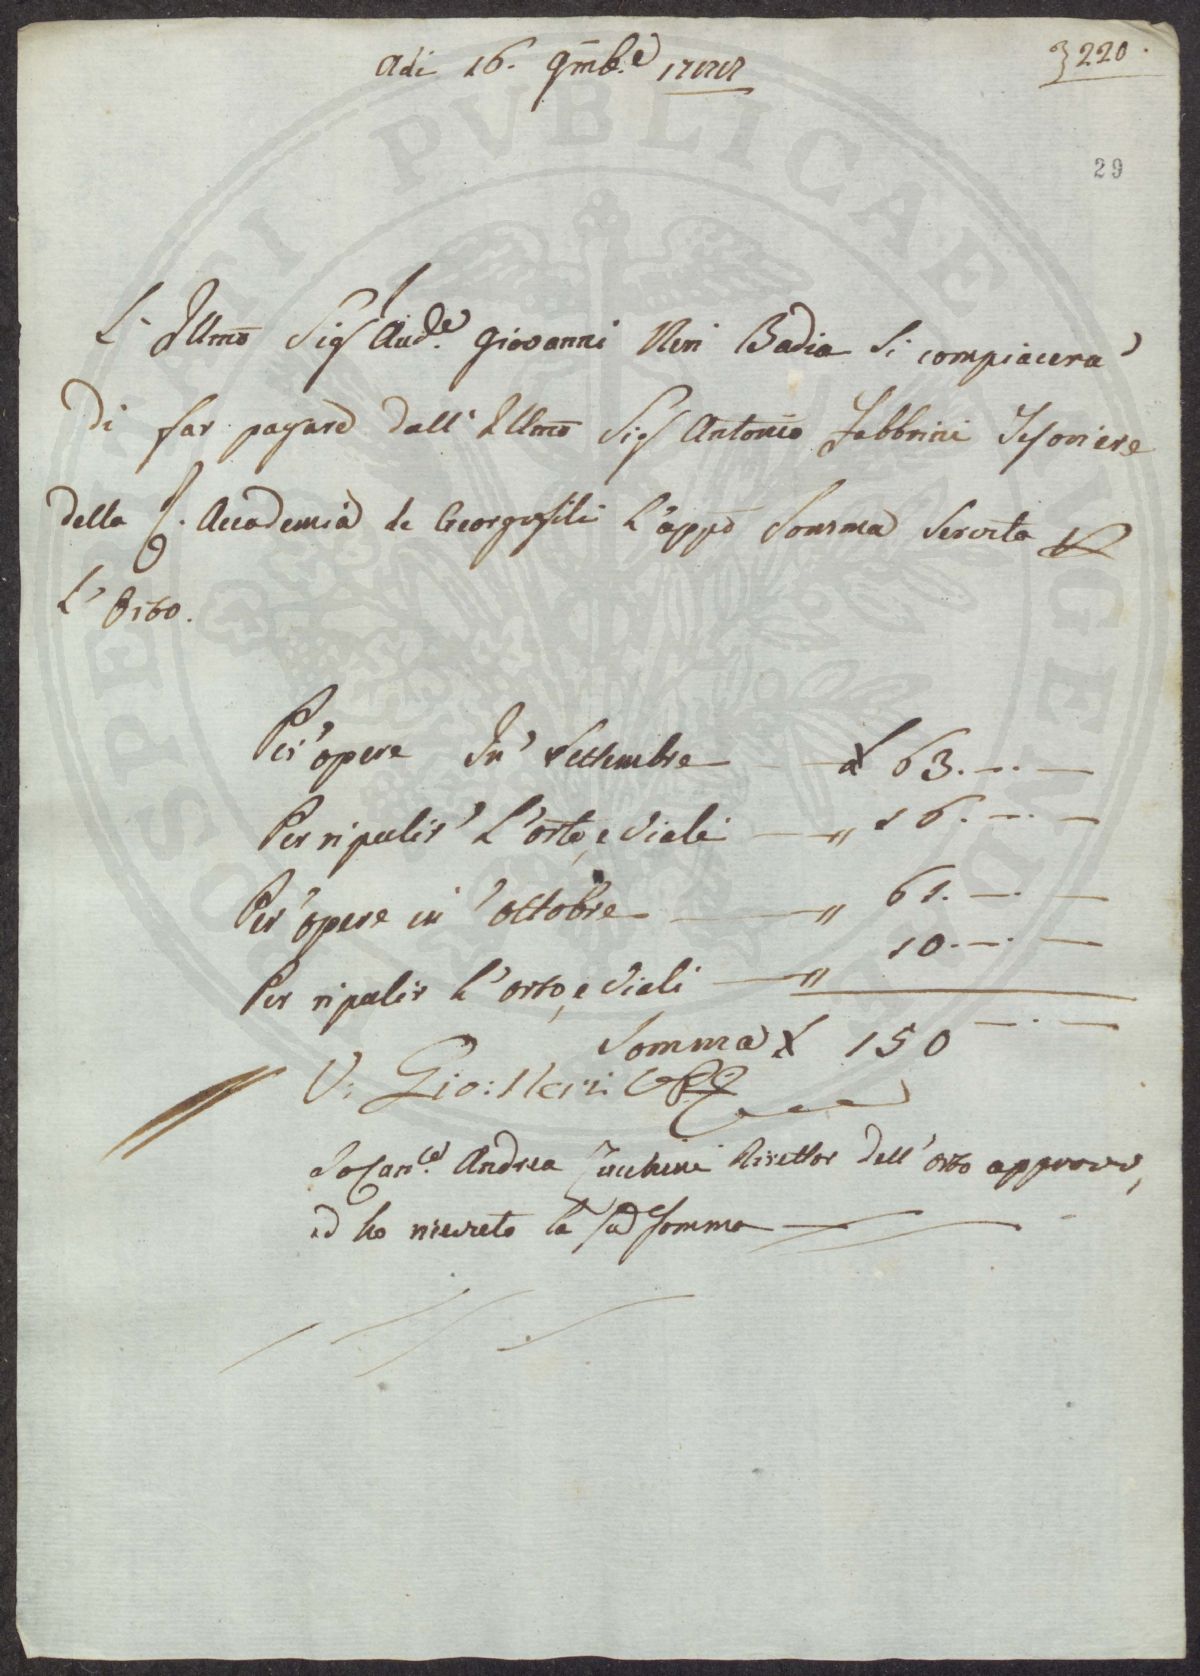 Adi 16. 9mb.e 1787
3220.
29
L'Illmo Sig.r Aud.e Giovanni Neri Badia Si compiacera'
di far pagare dall'Illmo Sig.r Antonio Fabbrini Tesoriere
della R. Accademia de Georgofili L'app.o Somma Servita
L'Orto.
Per opere In Settembre £ 63. — . —
Per ripulir' L'orto, e Viali — " 16. — . —
Per'opere in 'ottobre — " 61. — . —
Per ripulir L'orto, e Viali — " 10. — . —
Somma £ 150 — . —
V. Gio: Neri
Io Can.co Andrea Zucchini Direttor dell'orto approvo,
ed ho ricevuto la Sud.a Somma
OSPERITATI PVBLICAE AVGENDAE